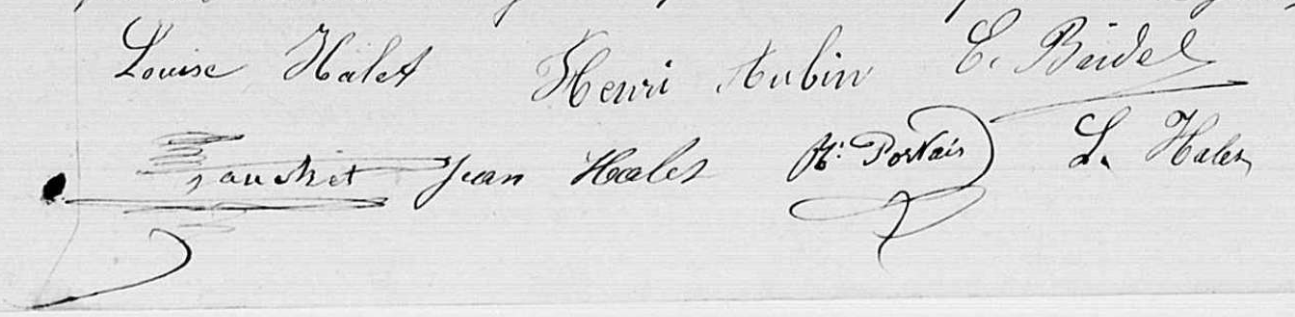 Louise Halet Henri Aubin E. Bridel
Fauchet Jean Halet H. Portais L. Halet